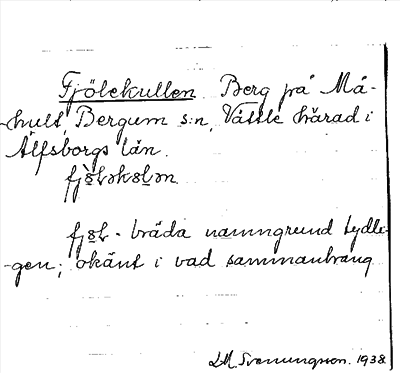 Fjölekullen Berg på Må-
-hult, Bergum s:n, Vättle härad i
Älfsborgs län.
fjò̱ləkuḻən
fjo̱l - bräda namngrund tydli-
-gen; okänt i vad sammanhang
L.M. Svenungsson. 1938